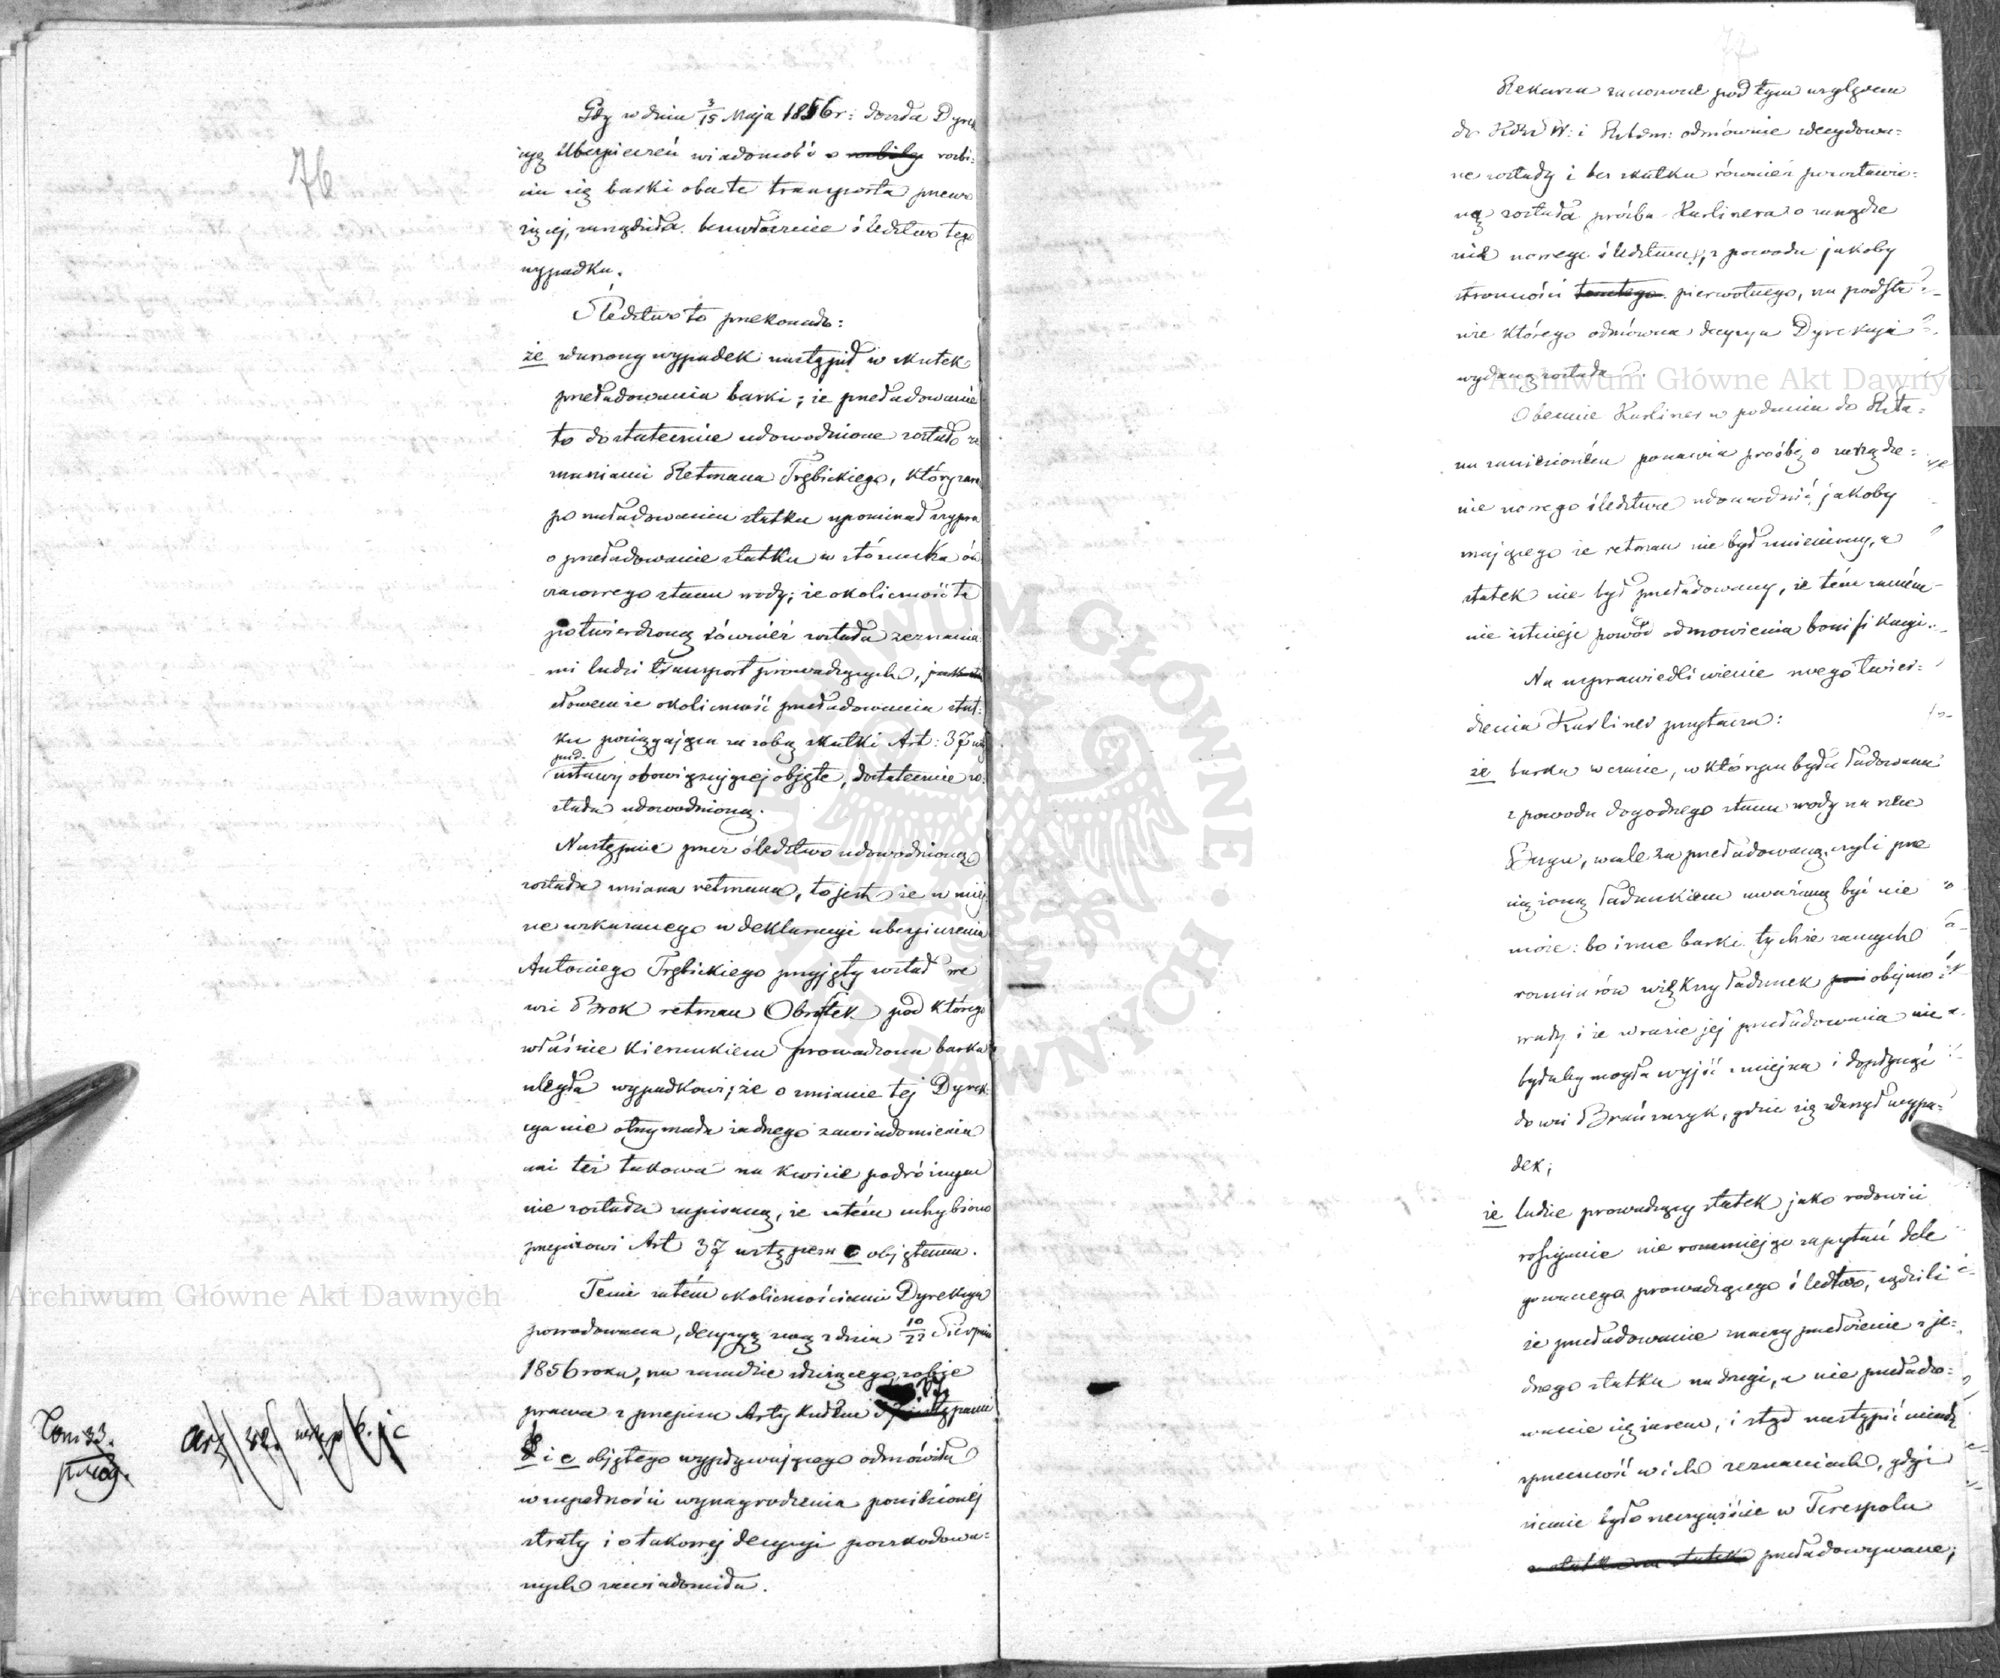 76
Gdy w dniu 3/15 Maja 1856 r: doszła Dyrek
cyę Ubezpieczeń wiadomość o rozbi:
ciu się barki oba te transporta przewo
żącej, zarządziła bezzwłocznie śledztwo tego
wypadku.
Śledztwo to przekonało:
że wzmiony wypadek nastąpił w skutek
przeładowania barki; że przeładowanie
to dostatecznie udowodnione zostało ze
znaniami Retmana Trębickiego, który zaraz
po naładowaniu statku upominał szypra
o przeładowanie statku w stósunku ów
czasowego stanu wody; że okoliczność ta
potwierdzoną również została zeznania
mi ludzi transport prowadzących,
słowem że okoliczność przeładowania stat:
ku pociągająca za sobą skutki Art: 37
ustawy obowięzującej objęte, dostatecznie zo:
stała udowodnioną.
Następnie przez śledztwo udowodnioną
została zmiana retmana, to jest że w miej
sce wskazanego w deklaracyi ubezpieczenia
Antoniego Trębickiego przyjęty został we
wsi Brok retman Obrątek pod którego
właśnie kierunkiem prowadzona barka
uległa wypadkowi; że o zmianie tej Dyrek
cya nie otrzymała żadnego zawiadomienia
ani też takowa na kwicie podróżnym
nie została zapisaną, że zatém uchybiono
przepisowi Art 37 ustępem c objętemu.
Temi zatém okolicznościami Dyrekcya
powodowana, decyzyą swą z dnia 10/22 Sierpnia
1856 roku, na zasadzie służącego sobie
prawa z przepisu Artykułu 37
b i c objętego wypływającego odmówiła
w zupełności wynagrodzenia poniesionej
straty i o takowej decyzyi poszkodowa:
nych zawiadomiła.
Tom 33.
Archiwum Główne Akt Dawnych
77
Rekursa zanoszone pod tym względem
do KRz W: i Duchow: odmównie zdecydowa:
ne zostały i bez skutku również pozostawio:
ną została prośba Karlinera o zarządze
nie nowego śledztwa, z powodu jakoby
stronności pierwotnego, na podsta
wie którego odmówna decyzya Dyrekcyi
wydaną została.
Obecnie Karliner w podaniu do
na zamieszczonem ponawia prośbę o zarządze:
nie nowego śledztwa udowodnić jakoby
mającego że retman nie był zmieniony, a
statek nie był przeładowany, że tém samém
nie istnieje powód odmówienia bonifikacyi.
Na usprawiedliwienie swego twier:
dzenia Karliner przytacza:
że barka w czasie, w którym była ładowana
z powodu dogodnego stanu wody na rzece
Bugu, wcale za przeładowaną czyli prze
ciążoną ładunkiem uważaną być nie
może: bo inne barki tychże samych
rozmiarów większy ładunek obejmo
wały i że w razie jej przeładowania nie
byłaby mogła wyjść z miejsca i dopłynąć
do wsi Brańszczyk, gdzie się zdarzył wypa:
dek;
że ludzie prowadzący statek jako rodowici
rossyanie nie rozumiejąc zapytań dele
gowanego prowadzącego śledztwo, sądzili
że przeładowanie znaczy przełożenie z je:
dnego statku na drugi, a nie przełado:
wanie ciężarem, i stąd nastąpić miała
sprzeczność w ich zeznaniach, gdyż
siemie było rzeczywiście w Terespolu
przeładowywane;
Archiwum Główne Akt Dawnych
ARCHIWUM GŁÓWNE AKT DAWNYCH